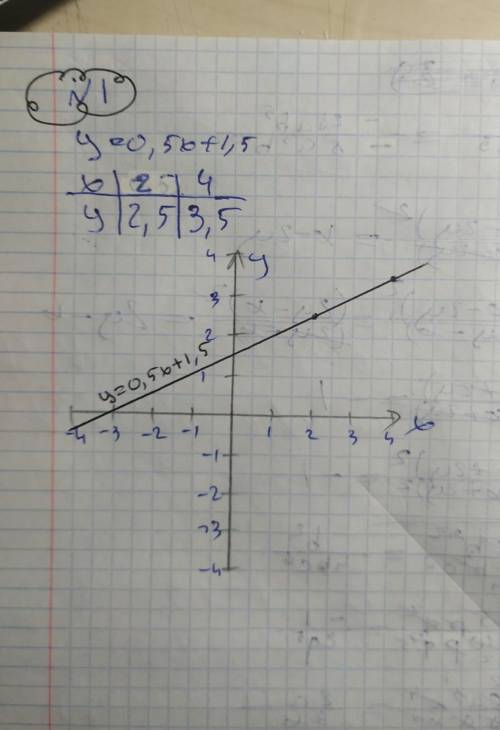 №1
y=0,5x+1,5
x 2 4
y 2,5 3,5
4 y
3
2
y=0,5x+1,5
1
-4 -3 -2 -1 1 2 3 4 x
-1
-2
-3
-4